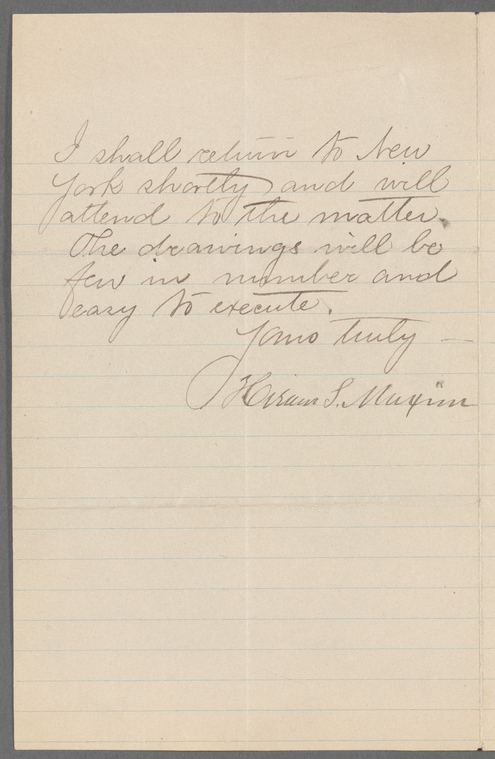 I shall return to New
York shortly and will
attend to the matter.
The drawings will be
few in number and
easy to execute.
Yours truly —
Hiram S. Maxim